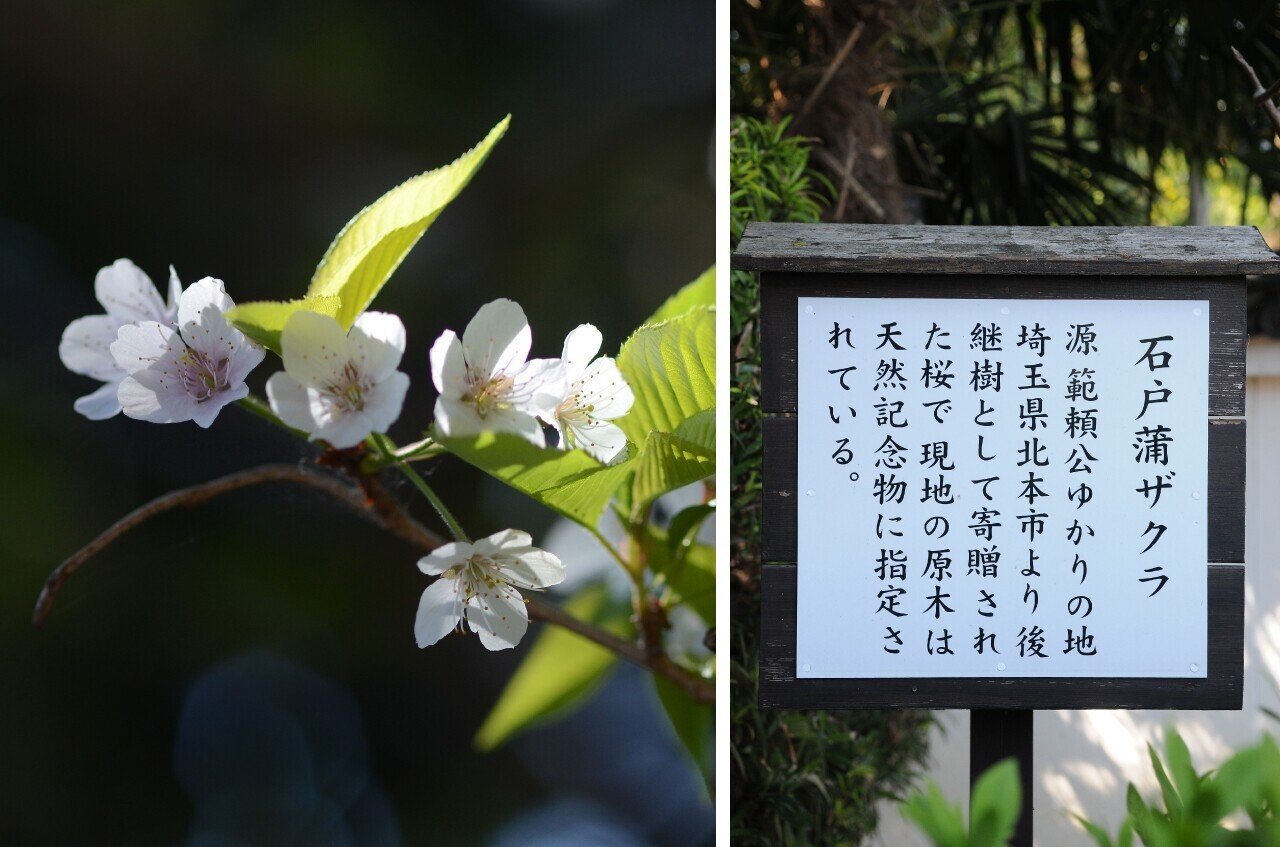 石戸蒲ザクラ
源範頼公ゆかりの地
埼玉県北本市より後
継樹として寄贈され
た桜で現地の原木は
天然記念物に指定さ
れている。